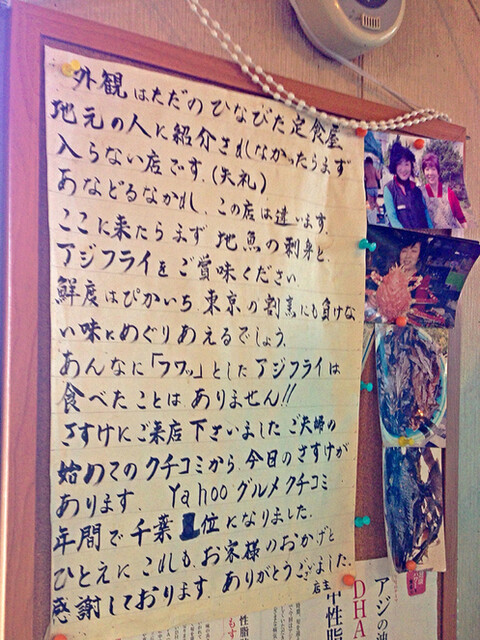 外観はただのひなびた定食屋
地元の人に紹介されなかったらまず
入らない店です。(失礼)
あなどるなかれ、この店は違います。
ここに来たらまず地魚の刺身と、
アジフライをご賞味ください
鮮度はぴかいち 東京の割烹にも負けな
い味とめぐりあえるでしょう。
あんなに「フワッ」としたアジフライは
食べたことはありません!!
さすけにご来店下さいましたご夫婦の
始めてのクチコミから、今日のさすけが
あります。 Yahooグルメクチコミ
年間で千葉1位になりました。
ひとえにこれも、お客様のおかげと
感謝しております。ありがとうございました。
店主
アジの
DHA
中性脂
性脂
もす